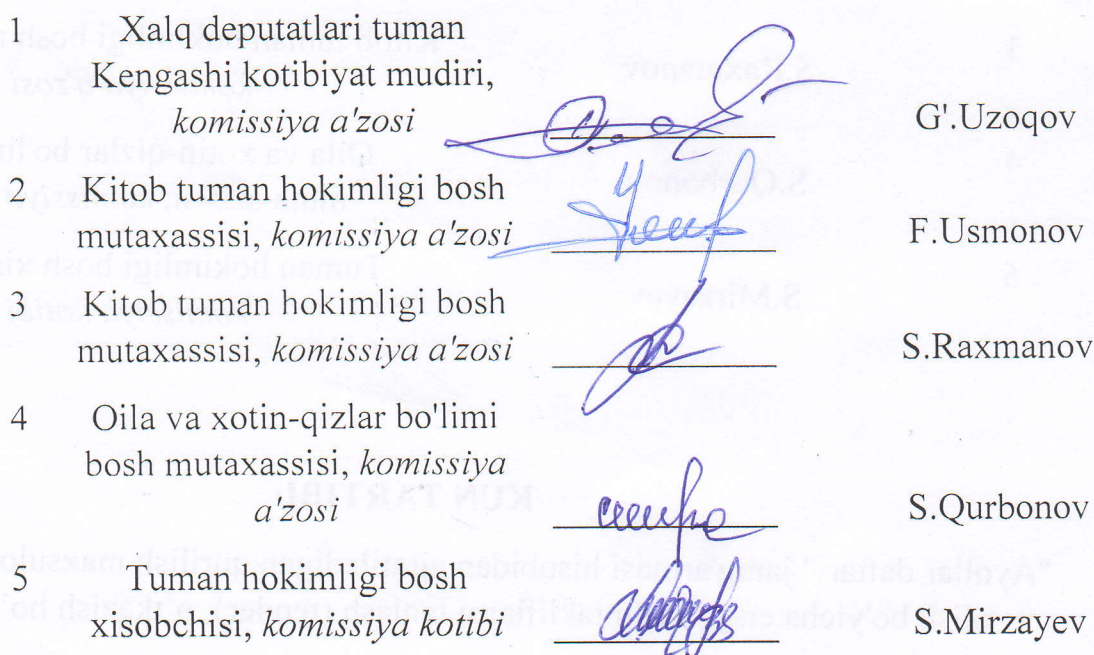 1 Xalq deputatlari tuman
Kengashi kotibiyat mudiri,
komissiya a'zosi G'.Uzoqov
2 Kitob tuman hokimligi bosh
mutaxassisi, komissiya a'zosi F.Usmonov
3 Kitob tuman hokimligi bosh
mutaxassisi, komissiya a'zosi S.Raxmanov
4 Oila va xotin-qizlar bo'limi
bosh mutaxassisi, komissiya
a'zosi S.Qurbonov
5 Tuman hokimligi bosh
xisobchisi, komissiya kotibi S.Mirzayev
KUN TARTIBI:
"Ayollar daftari" jamg'armasi hisobidan